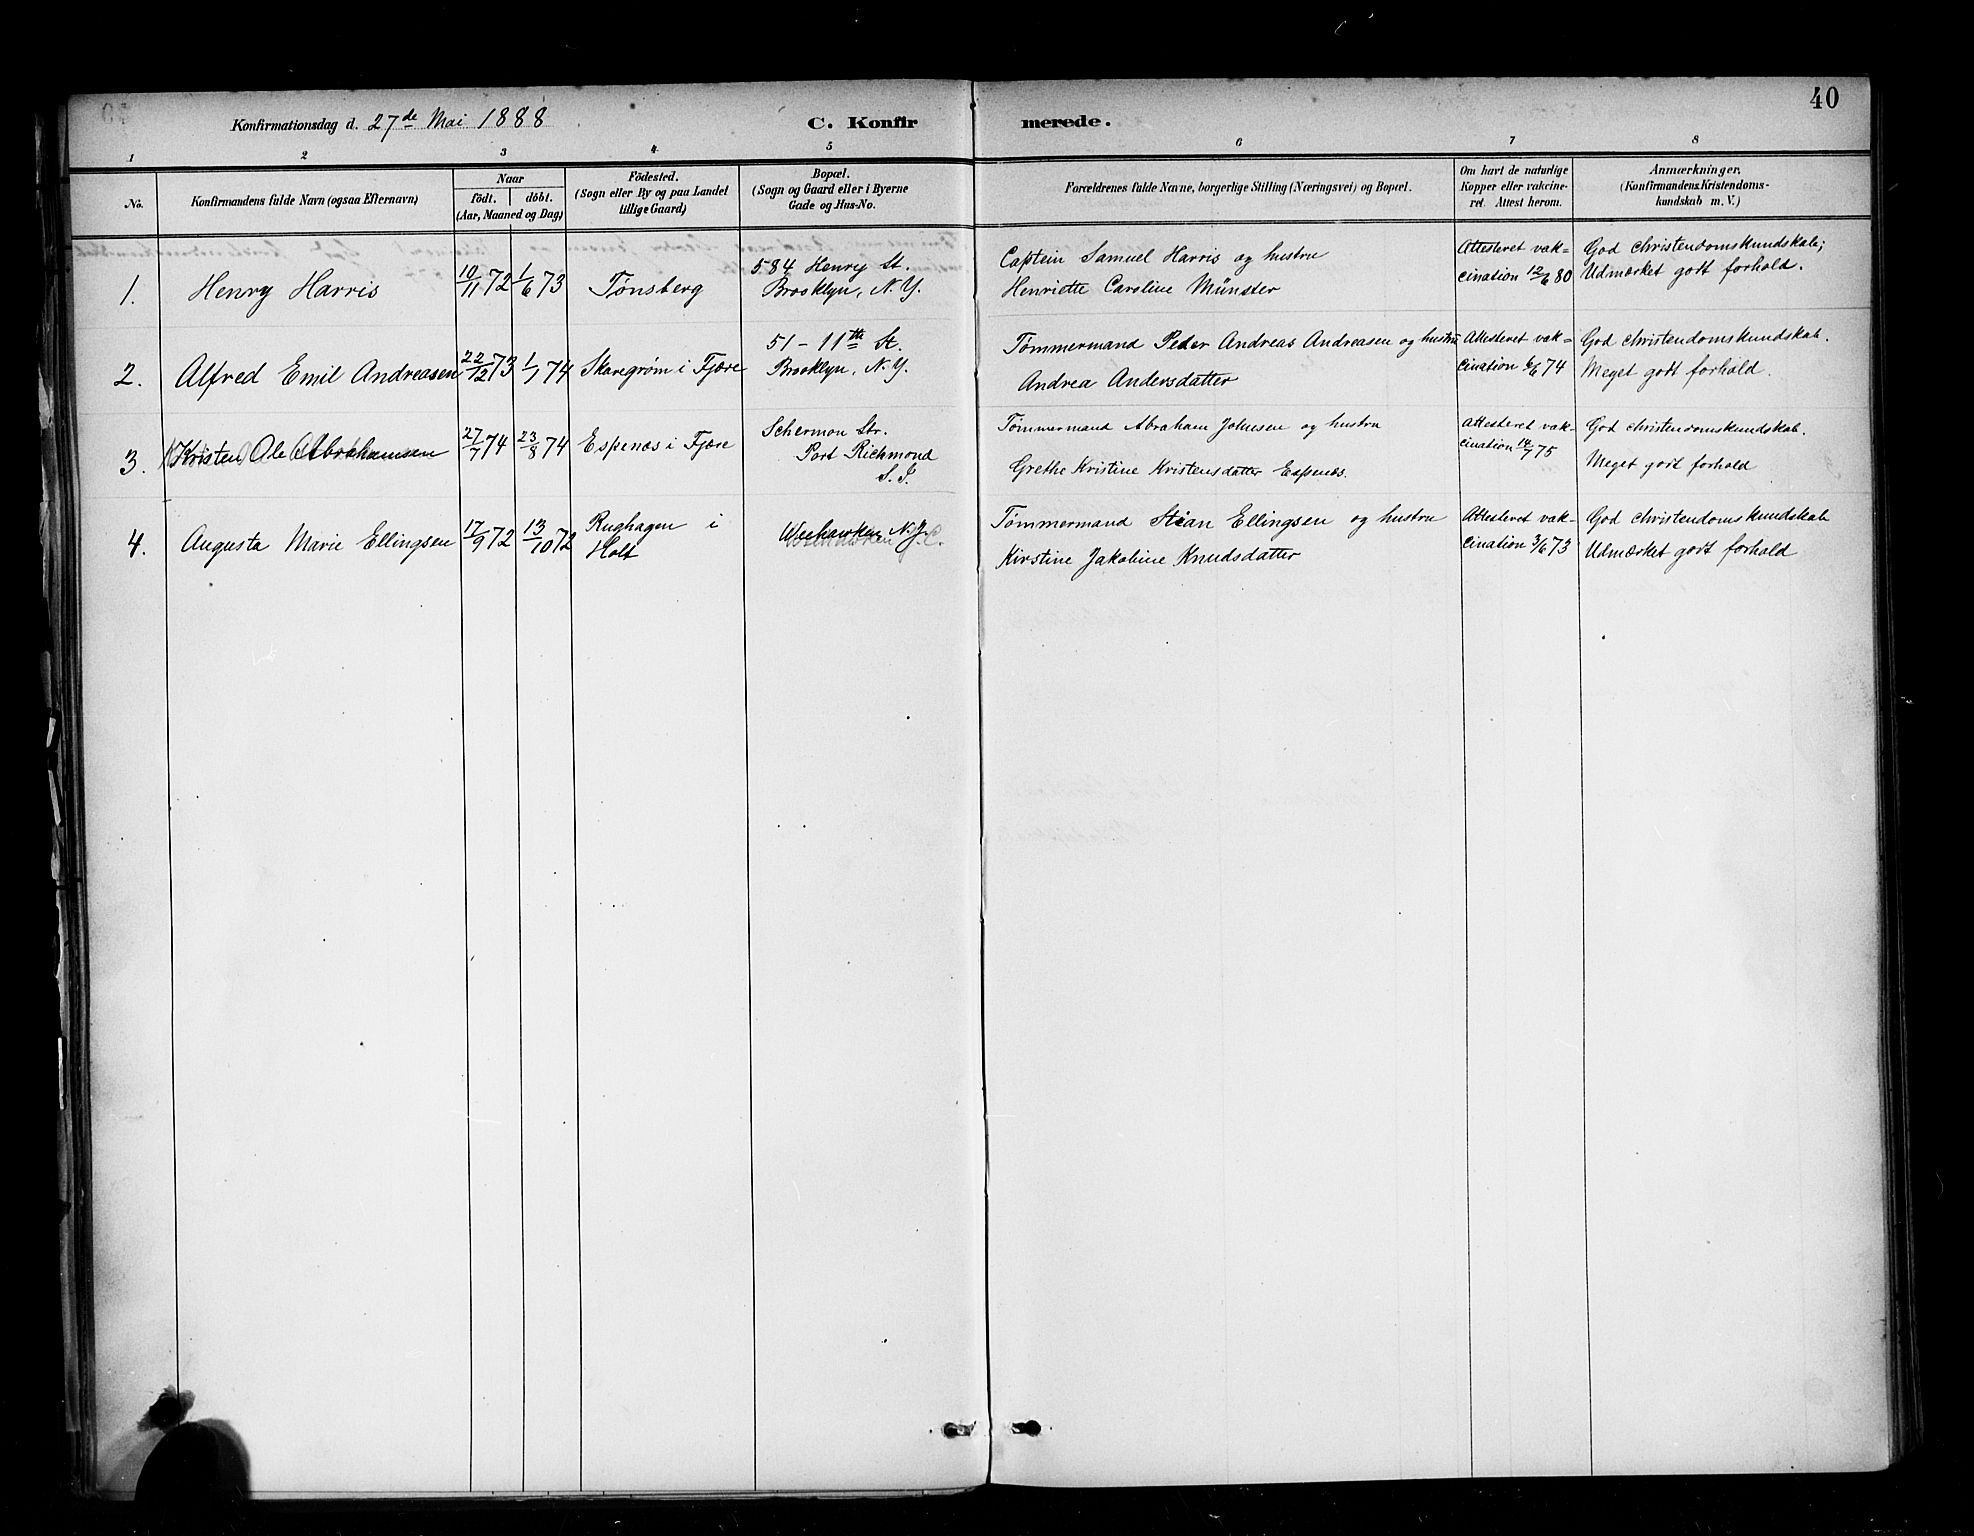 40
Konfirmationsdag d. 27de Mai 1888
C. Konfirmerede.
1 2 3 4 5 6 7 8
No.
Konfirmandens fulde Navn (ogsaa Efternavn)
Naar
födt. döbt.
(Aar, Maaned og Dag)
Födested.
(Sogn eller By og paa Landet
tillige Gaard)
Bopæl.
(Sogn og Gaard eller i Byerne
Gade og Hus-No.
Forældrenes fulde Navne, borgerlige Stilling (Næringsvei) og Bopæl.
Om havt de naturlige
Kopper eller vakcine-
ret. Attest herom.
Anmærkninger,
(Konfirmandens Kristendoms-
kundskab m. V.)
1. Henry Harris 10/11 72 1/6 73 Tønsberg
584 Henry St.
Brooklyn, N.Y.
Captein Samuel Harris og hustru
Henriette Caroline Münster
Attesteret vak=
cination 12/6 80
God christendomskundskab;
Udmærket godt forhold.
2. Alfred Emil Andreasen 22/12 73 1/7 74 Skaregrøm i Fjære
51 - 11th St.
Brooklyn, N.Y.
Tømmermand Peder Andreas Andreasen og hustru
Andrea Andersdatter
Attesteret vak=
cination 6/6 74
God christendomskundskab.
Meget godt forhold.
3. Kristen Ole Abrahamsen 27/7 74 23/8 74 Espenæs i Fjære
Schermon Str.
Port Richmond
S. I.
Tømmermand Abraham Johnsen og hustru
Grethe Kristine Kristensdatter Espenæs.
Attesteret vak-
cination 14/7 75
God christendomskundskab.
Meget godt forhold
4. Augusta Marie Ellingsen 17/9 72 13/10 72
Rughagen i
Holt
Weehawken, N.J.
Tømmermand Stian Ellingsen og hustru
Kirstine Jakobine Knudsdatter
Attesteret vak-
cination 3/6 73
God christendomskundskab
Udmærket godt forhold